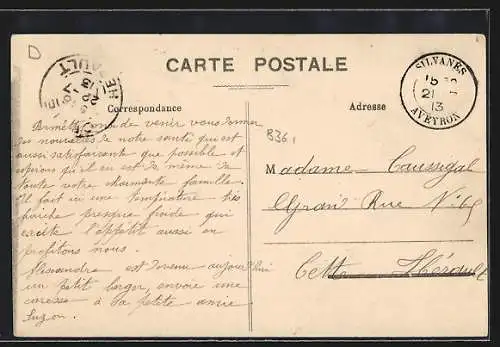 D
CARTE POSTALE
SILVANÈS
21
13
AVEYRON
HERAULT
Correspondance
Adresse
836
Permettez moi de venir vous donner
des nouvelles de notre santé qui est
aussi satisfaisante que possible et
espérons qu'il en est de même de
toute votre charmante famille.
Il fait ici une température très
fraîche presque froide qui
excite l'appétit aussi en
profitons nous.
Alexandre est devenu aujourd'hui
un petit berger, envoie une
caresse à sa petite amie
Suzon.
Madame Caussigal
Grand Rue N°
Cette Hérault